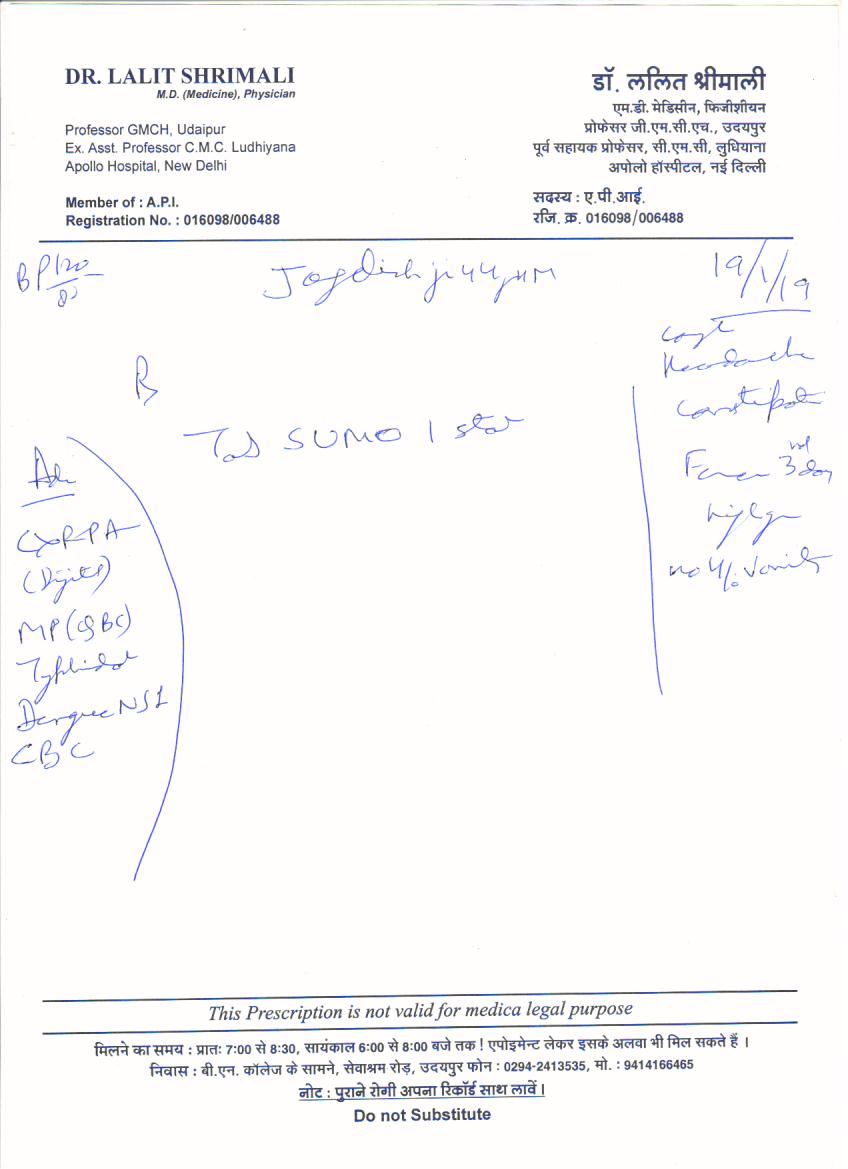 DR. LALIT SHRIMALI
M.D. (Medicine), Physician
Professor GMCH, Udaipur
Ex. Asst. Professor C.M.C. Ludhiyana
Apollo Hospital, New Delhi
Member of : A.P.I.
Registration No. : 016098/006488
डॉ. ललित श्रीमाली
एम.डी. मेडिसीन, फिजीशीयन
प्रोफेसर जी.एम.सी.एच., उदयपुर
पूर्व सहायक प्रोफेसर, सी.एम.सी, लुधियाना
अपोलो हॉस्पीटल, नई दिल्ली
सदस्य : ए.पी.आई.
रजि. क्र. 016098/006488
BP 120
Jagdish ji 44
19/1/19
Headache
Constipat
3rd day
no vomit
R
Tab SUMO 1 stat
Adv
CXR-PA
(Digital)
MP (QBC)
Typhidot
Dengue NS1
CBC
This Prescription is not valid for medica legal purpose
मिलने का समय : प्रातः 7:00 से 8:30, सायंकाल 6:00 से 8:00 बजे तक ! एपोइमेन्ट लेकर इसके अलवा भी मिल सकते हैं ।
निवास : बी.एन. कॉलेज के सामने, सेवाश्रम रोड़, उदयपुर फोन : 0294-2413535, मो. : 9414166465
नोट : पुराने रोगी अपना रिकॉर्ड साथ लावें ।
Do not Substitute